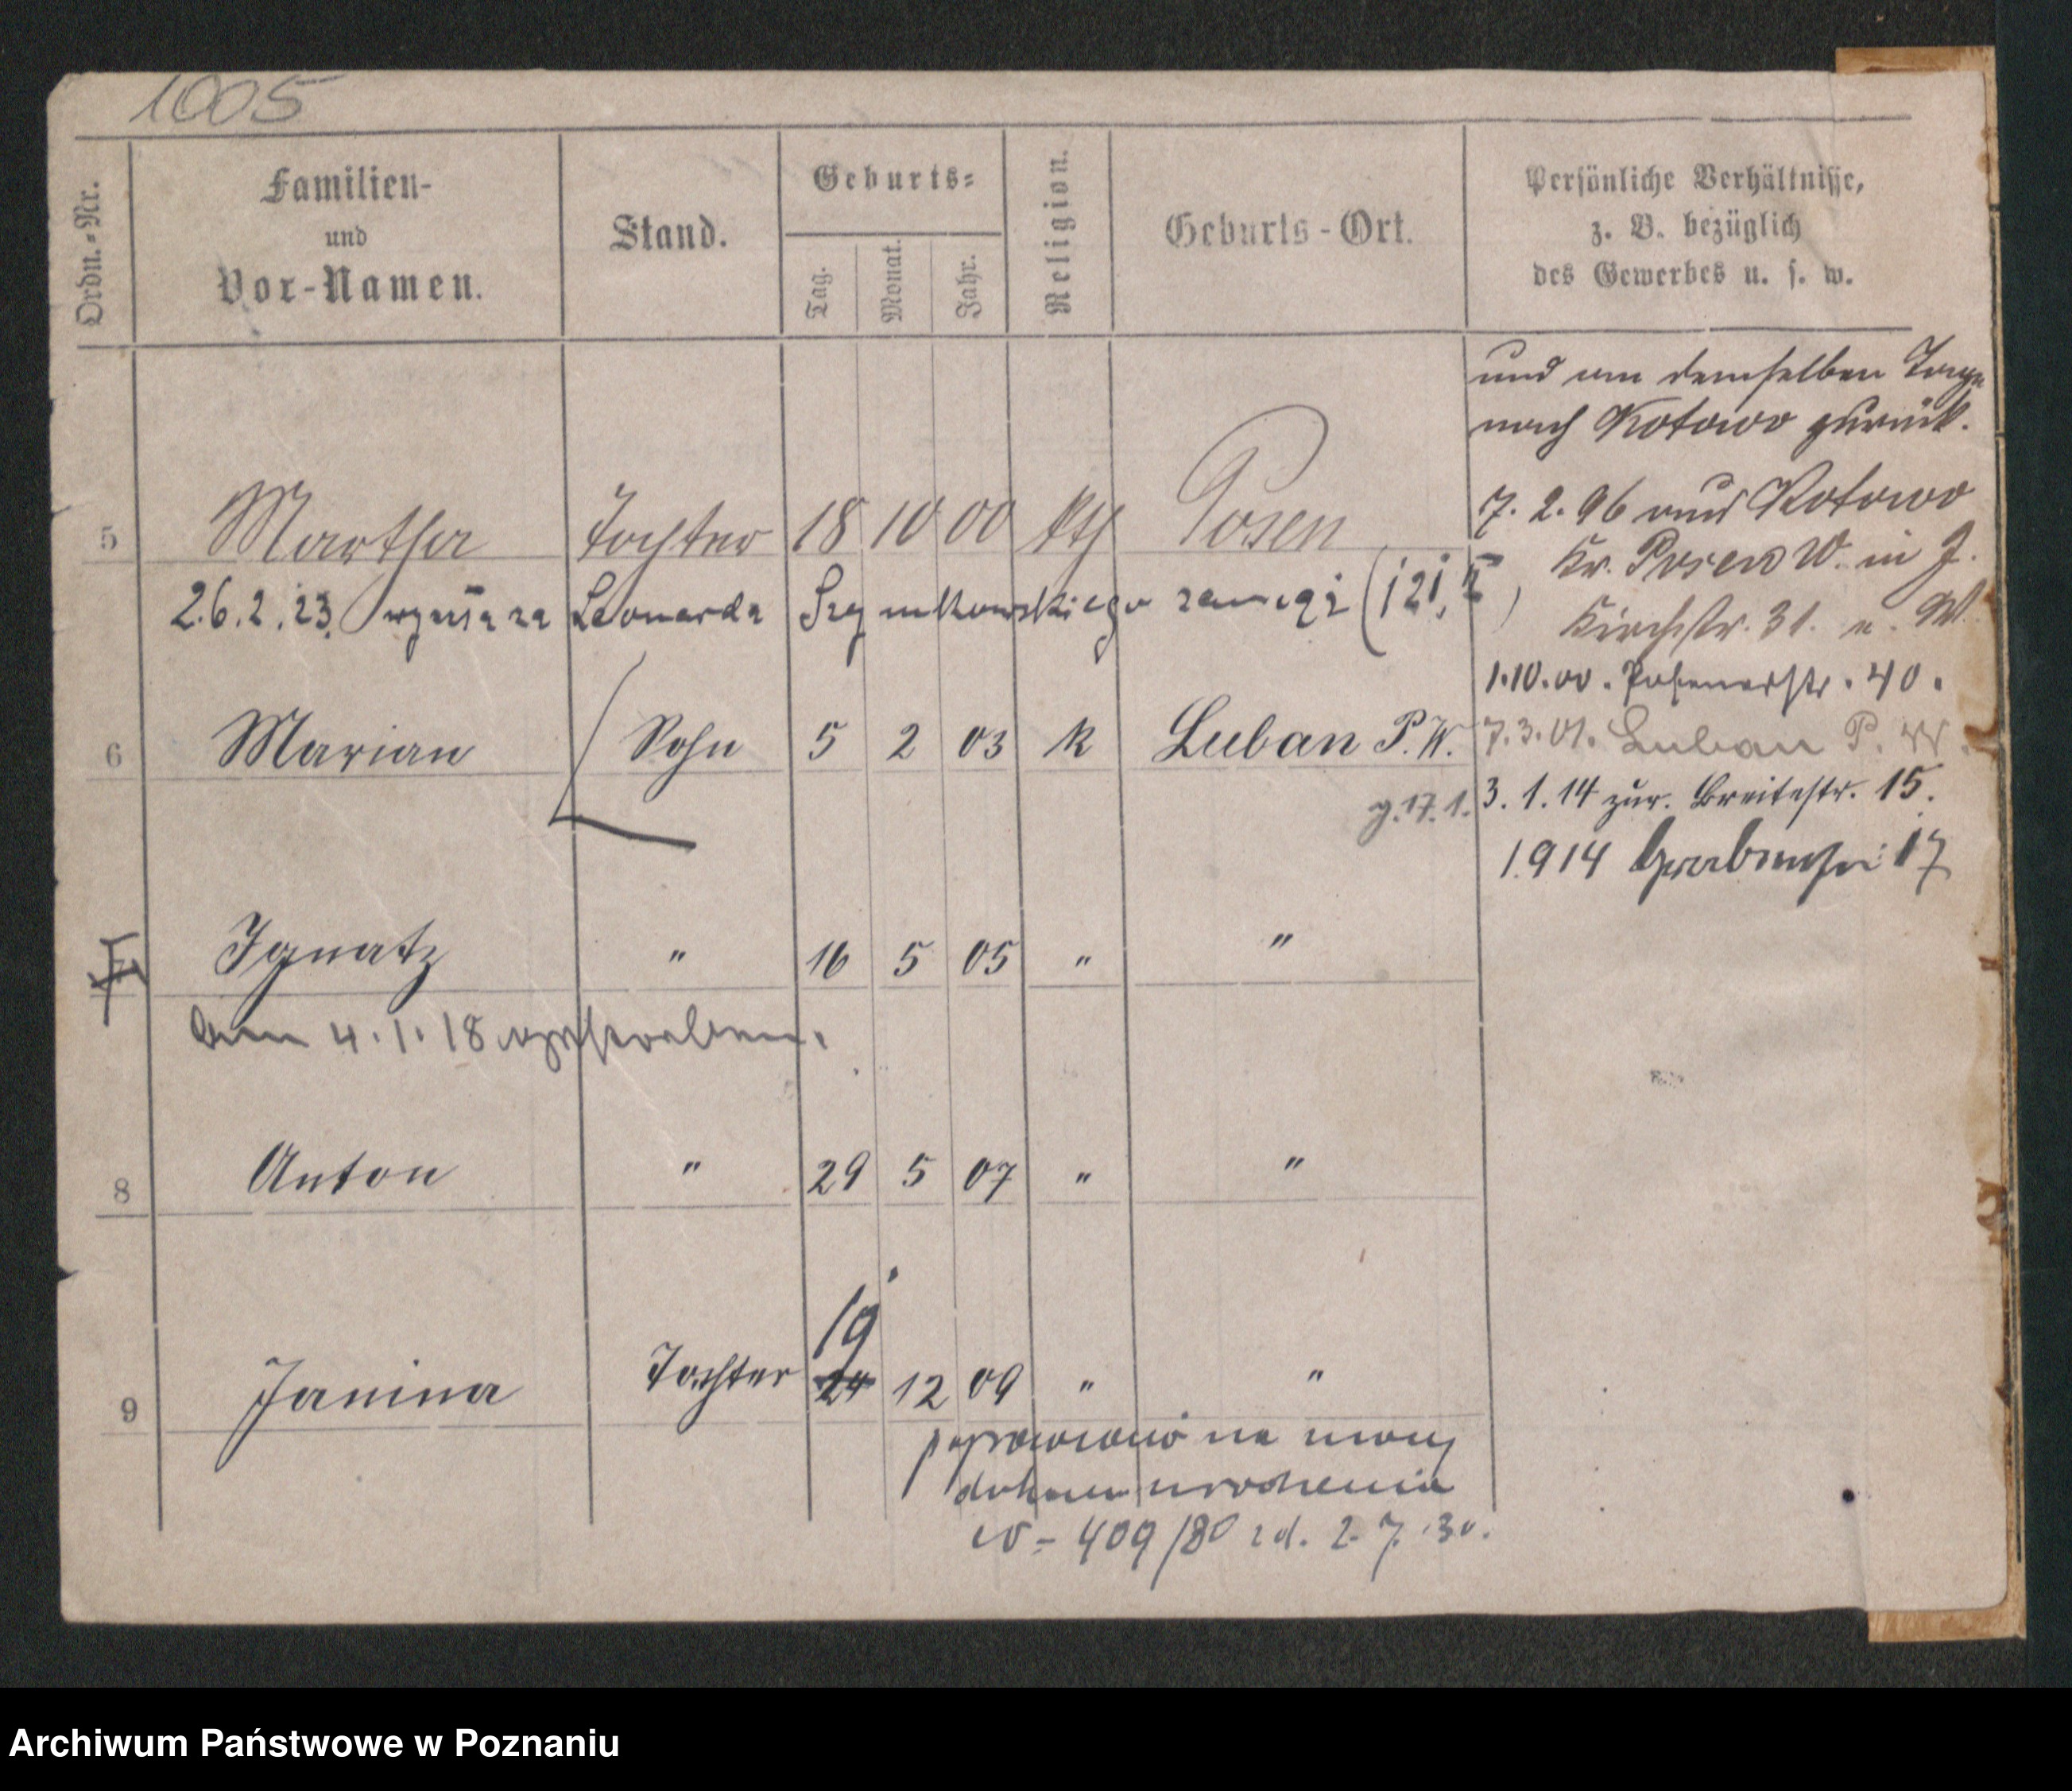 1005
Ordn.-Nr.
Familien-
und
Vor-Namen.
Stand.
Geburts-
Tag. Monat. Jahr.
Religion.
Geburts-Ort.
Persönliche Verhältnisse,
z. B. bezüglich
des Gewerbes u. s. w.
und am demselben Tage
nach Kotowo zurück.
5 Martha Tochter 18 10 00 kth Posen
7. 2. 96 aus Kotowo
Kr. Posen W. in J.
26.2.23 wyszła za Leonarda zamąż (121,
Kirchstr. 31. u. W.
1.10.00. Posenerstr. 40.
6 Marian Sohn 5 2 03 k Luban P.W.
7.3.01. Luban P. W.
g.17.1. 3. 1. 14 zur. Breitestr. 15.
1914 17
Ignatz " 16 5 05 " "
am 4.1.18 verstorben.
8 Anton " 29 5 07 " "
19
9 Janina Tochter 24 12 09 " "
poprawiono na mocy
dokum urodzenia
409/80 z d. 2.7.30.
Archiwum Państwowe w Poznaniu